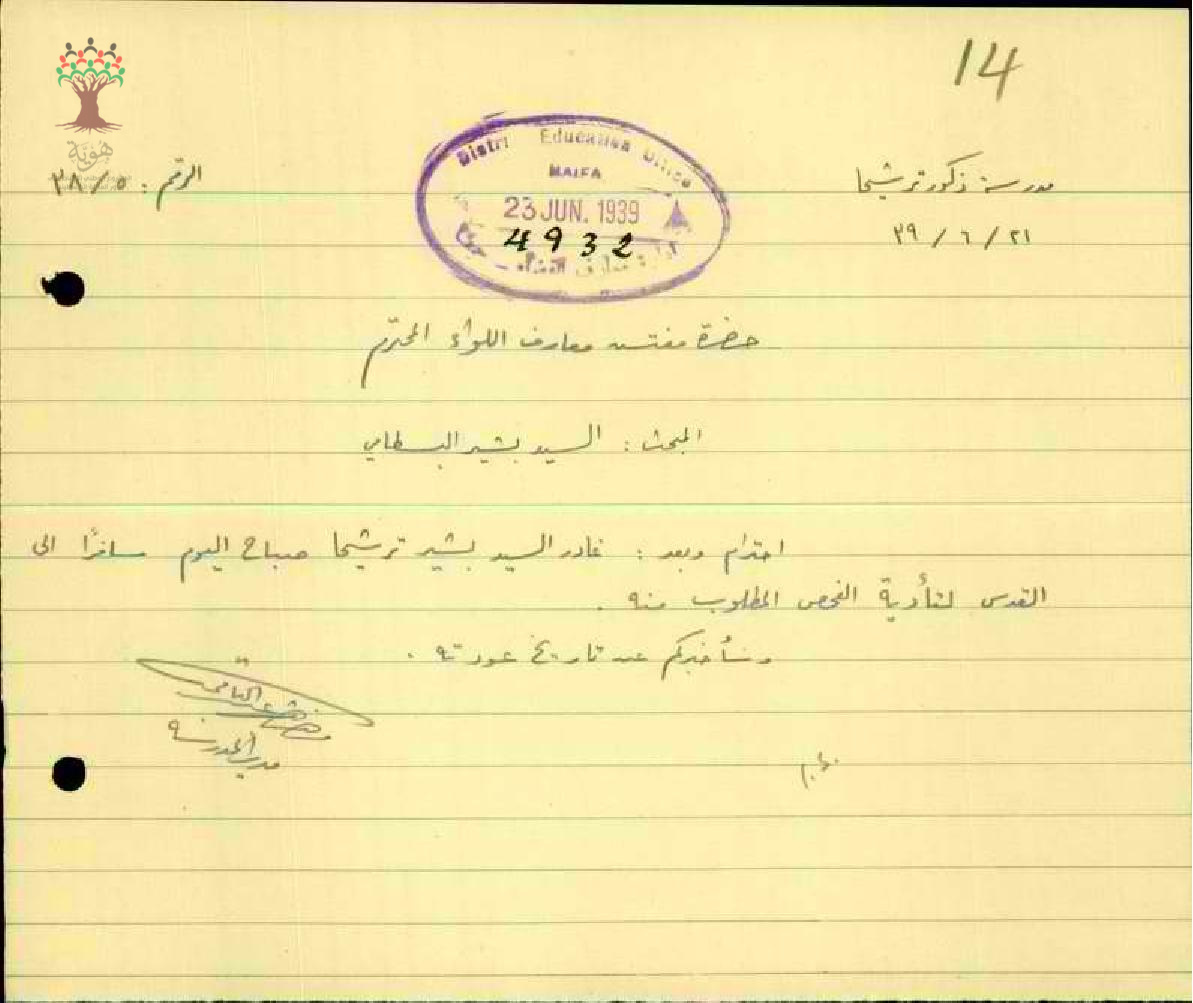 14
هوية
District Education Office
HAIFA
23 JUN. 1939
4932
ادارة معارف القضاء – حيفا
مدرسة ذكور ترشيحا
الرقم : ٣٨/٥
٢١ / ٦ / ٣٩
حضرة مفتش معارف اللواء المحترم
المبحث : السيد بشير البسطامي
احترام وبعد : غادر السيد بشير ترشيحا صباح اليوم مسافرًا الى
القدس لتأدية الفحص المطلوب منه .
وسأخبركم عن تاريخ عودته .
مدير المدرسة